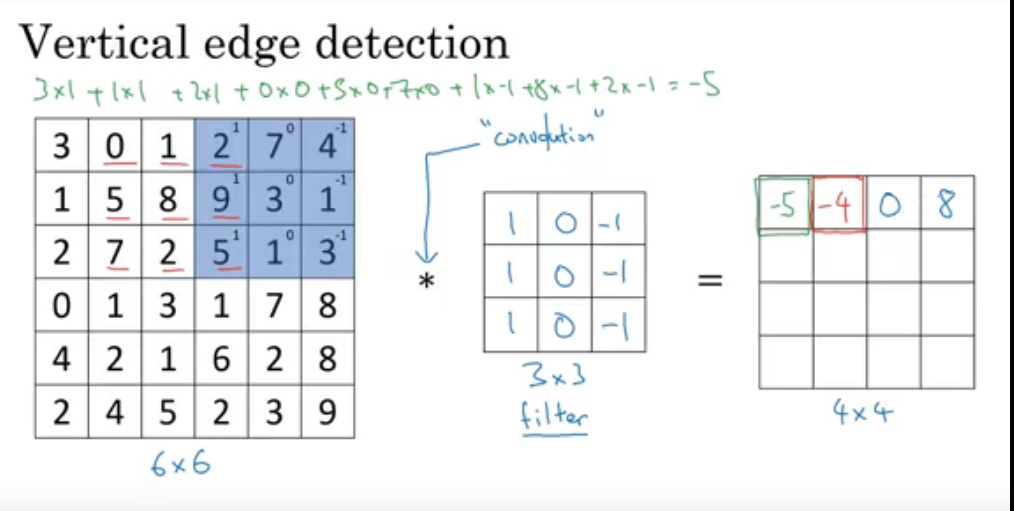 Vertical edge detection
3×1 + 1×1 + 2×1 + 0×0 + 5×0 + 7×0 + 1×-1 + 8×-1 + 2×-1 = -5
"convolution"
3 0 1 2 1 7 0 4 -1
1 5 8 9 1 3 0 1 -1
2 7 2 5 1 1 0 3 -1
0 1 3 1 7 8
4 2 1 6 2 8
2 4 5 2 3 9
6×6
*
1 0 -1
1 0 -1
1 0 -1
3×3
filter
=
-5 -4 0 8
4×4